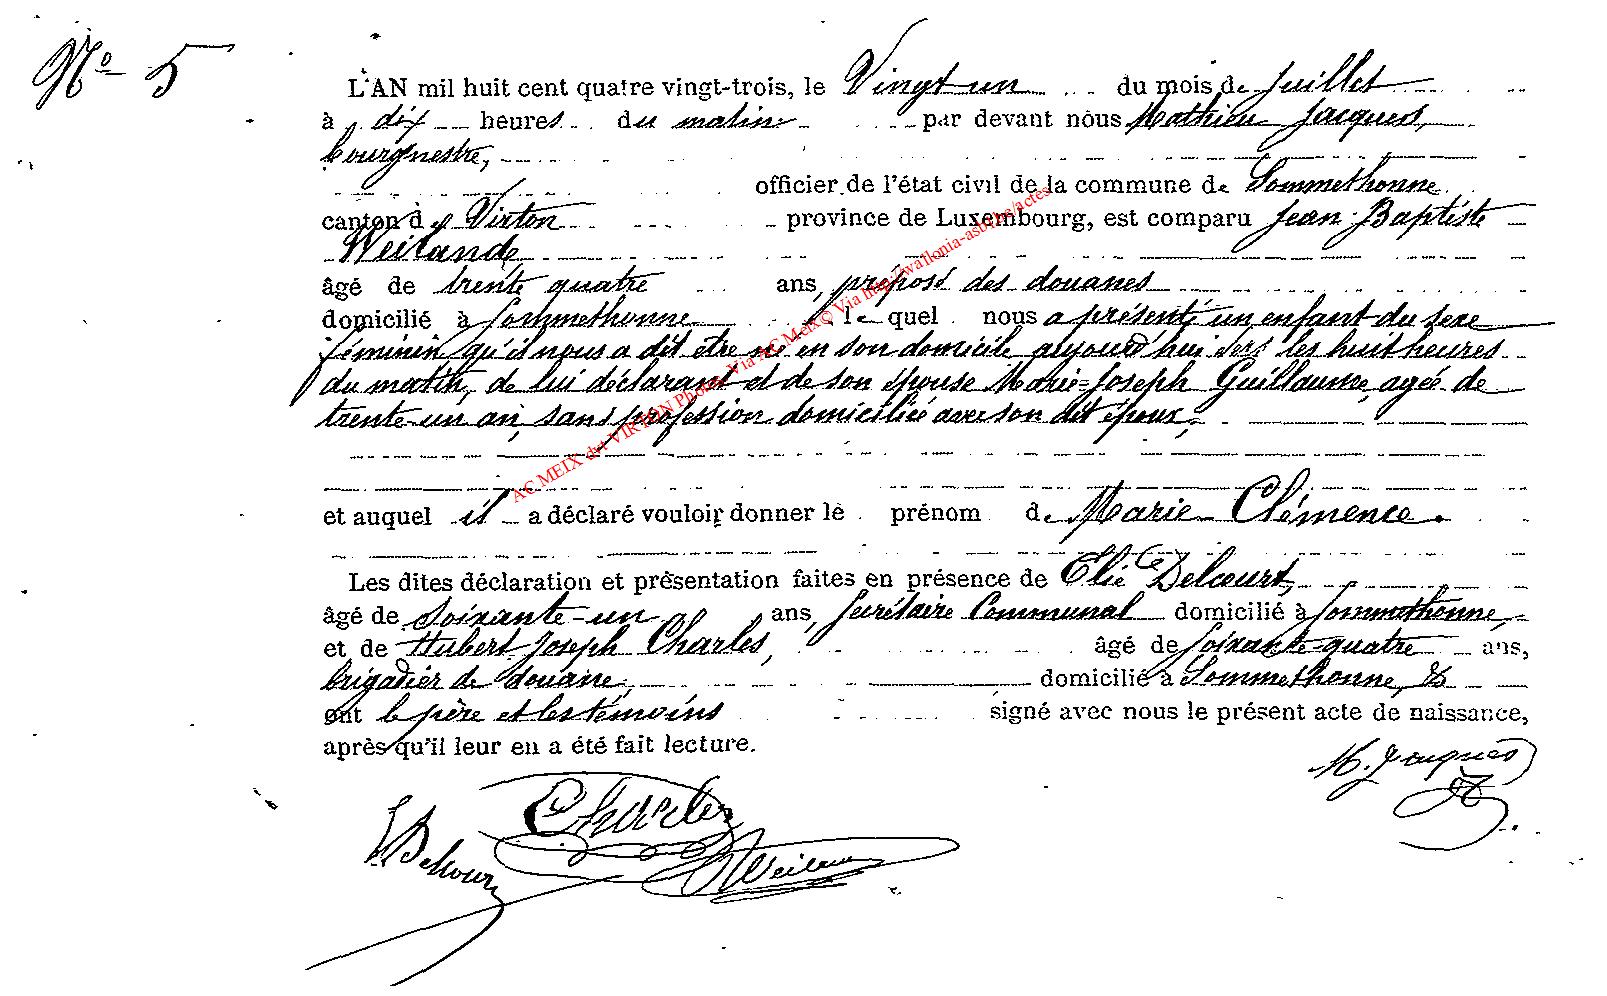 Nº 5
L'AN mil huit cent quatre vingt-trois, le Vingt un du mois de Juillet
à dix heures du matin par devant nous Mathieu Jacques,
bourgmestre,
officier de l'état civil de la commune de Sommethonne
canton de Virton province de Luxembourg, est comparu Jean-Baptiste
Weiland
âgé de trente quatre ans, préposé des douanes
domicilié à Sommethonne le quel nous a présenté un enfant du sexe
féminin qu'il nous a dit être né en son domicile aujourd'hui vers les huit heures
du matin, de lui déclarant et de son épouse Marie-Joseph Guillaume, agée de
trente-un an, sans profession domiciliée avec son dit époux,
et auquel il a déclaré vouloir donner le prénom de Marie-Clémence.
Les dites déclaration et présentation faites en présence de Elie Delcourt,
âgé de Soixante-un ans, Secrétaire Communal domicilié à Sommethonne,
et de Hubert Joseph Charles, âgé de Soixante-quatre ans,
brigadier de douane, domicilié à Sommethonne, &
ont le père et les témoins signé avec nous le présent acte de naissance,
après qu'il leur en a été fait lecture.
M. Jacques
Charles
E Delcourt
Weiland
AC MEIX dvt VIRTON Photos Via AC Meix © Via http://wallonia-asbl.be/actes